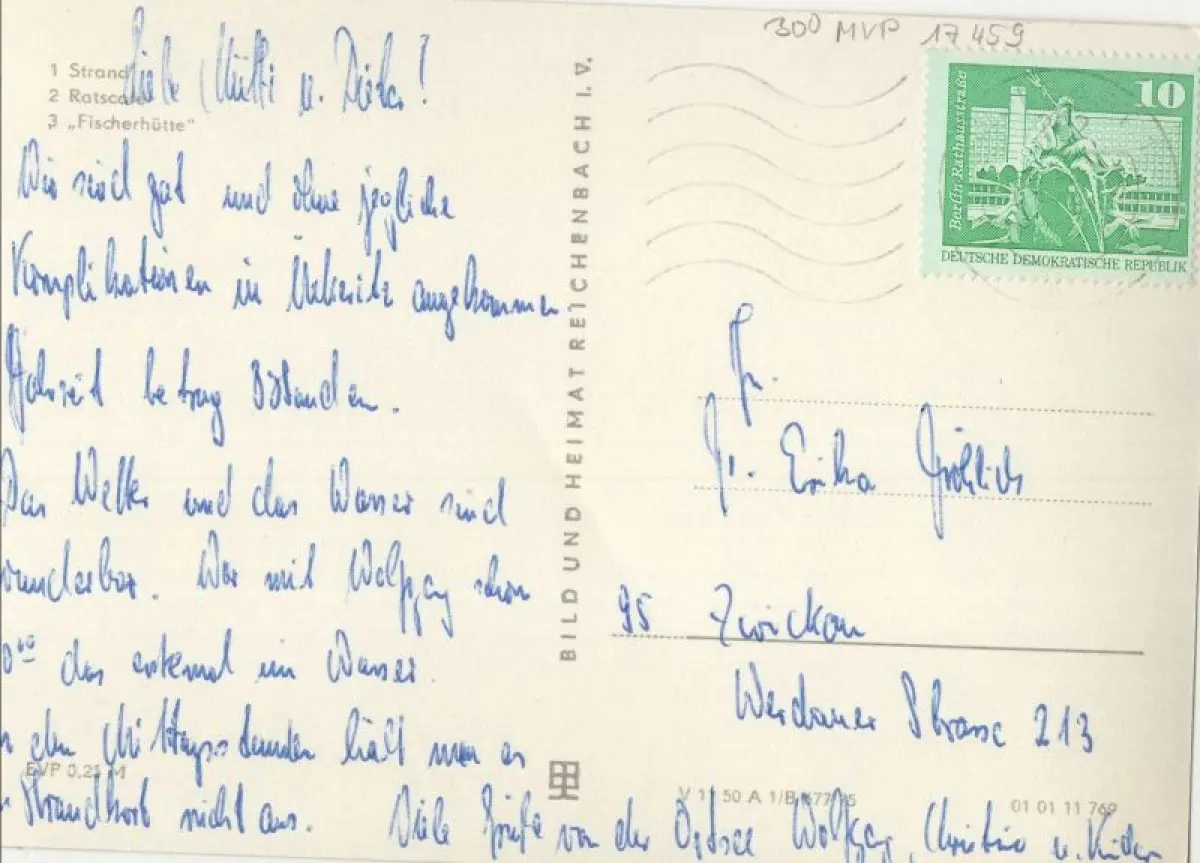 300 MVP 17459
1 Strand
2 Ratscafé
3 „Fischerhütte"
Liebe Mutti u.
Wir sind gut und ohne jegliche
Komplikationen in Ückeritz angekommen
Fahrzeit betrug 8 Stunden.
Das Wetter und das Wasser sind
wunderbar. War mit Wolfgang schon
das erstemal im Wasser.
den Mittagsstunden hält man es
Strandkorb nicht aus. Viele Grüße von der Ostsee Wolfgang, Christine u. Kinder
EVP 0,25 M
BILD UND HEIMAT REICHENBACH I. V.
10
Berlin Rathausstraße
DEUTSCHE DEMOKRATISCHE REPUBLIK
Fr.
Fr. Erika Fröhlich
95 Zwickau
Werdauer Strasse 213
01 01 11 769